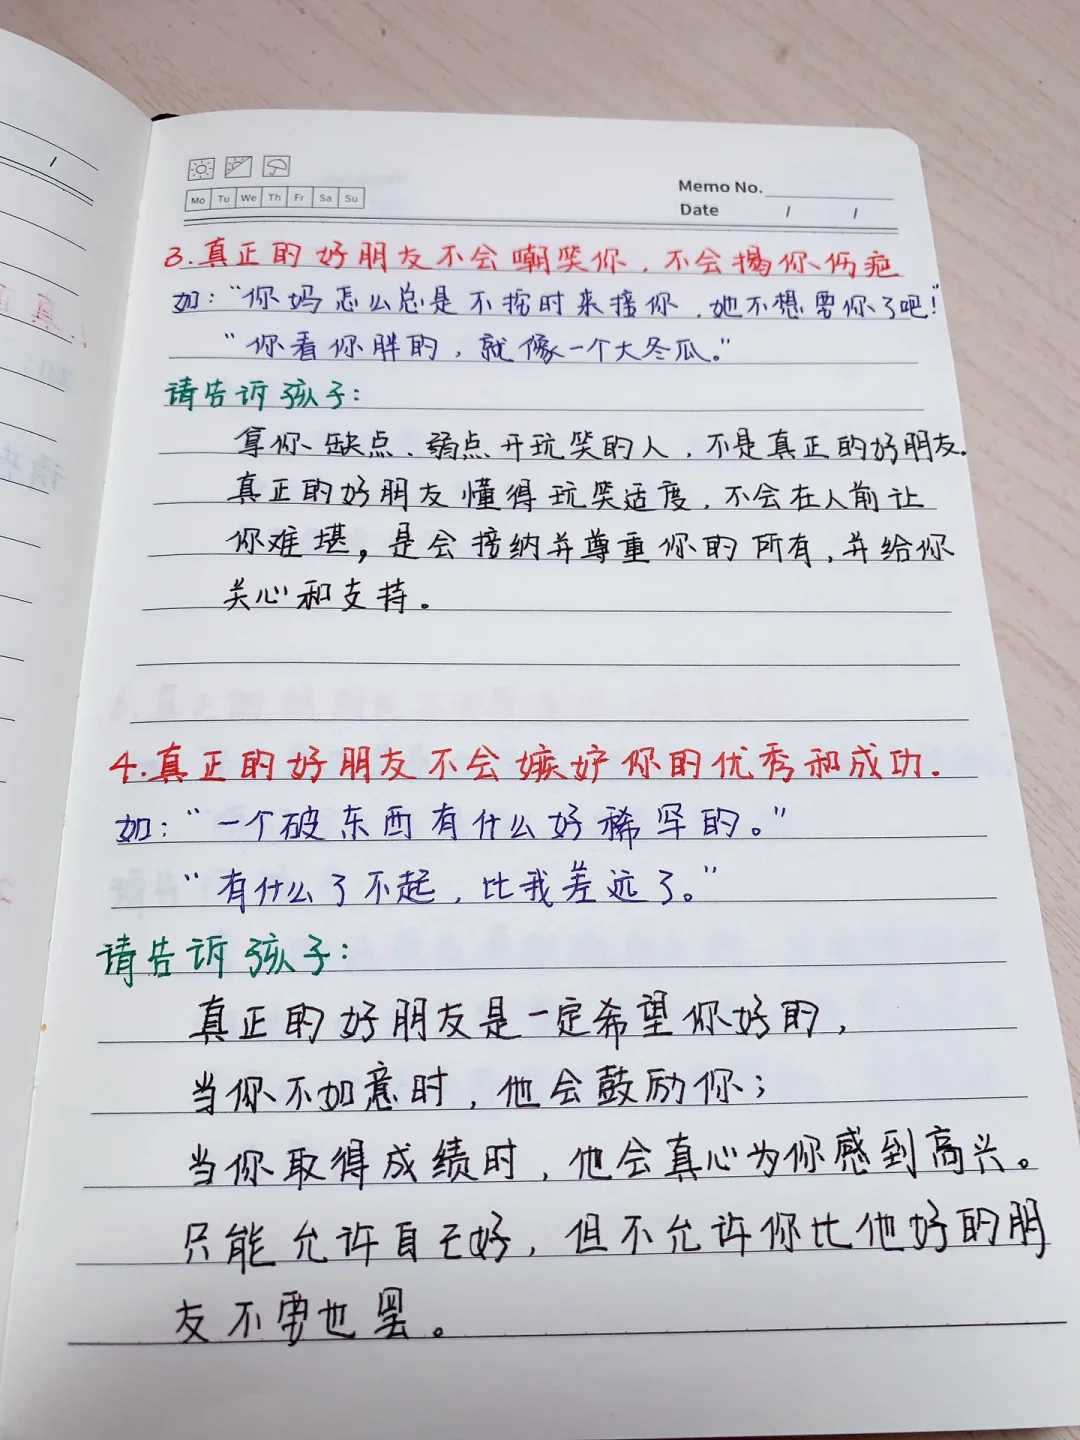 Mo Tu We Th Fr Sa Su
Memo No.
Date / /
3.真正的好朋友不会嘲笑你，不会揭你伤疤
如：“你妈怎么总是不按时来接你，她不想要你了吧！”
“你看你胖的，就像一个大冬瓜。”
请告诉孩子：
拿你缺点、弱点开玩笑的人，不是真正的好朋友.
真正的好朋友懂得玩笑适度，不会在人前让
你难堪，是会接纳并尊重你的所有，并给你
关心和支持。
4.真正的好朋友不会嫉妒你的优秀和成功.
如：“一个破东西有什么好稀罕的。”
“有什么了不起，比我差远了。”
请告诉孩子：
真正的好朋友是一定希望你好的，
当你不如意时，他会鼓励你；
当你取得成绩时，他会真心为你感到高兴。
只能允许自己好，但不允许你比他好的朋
友不要也罢。